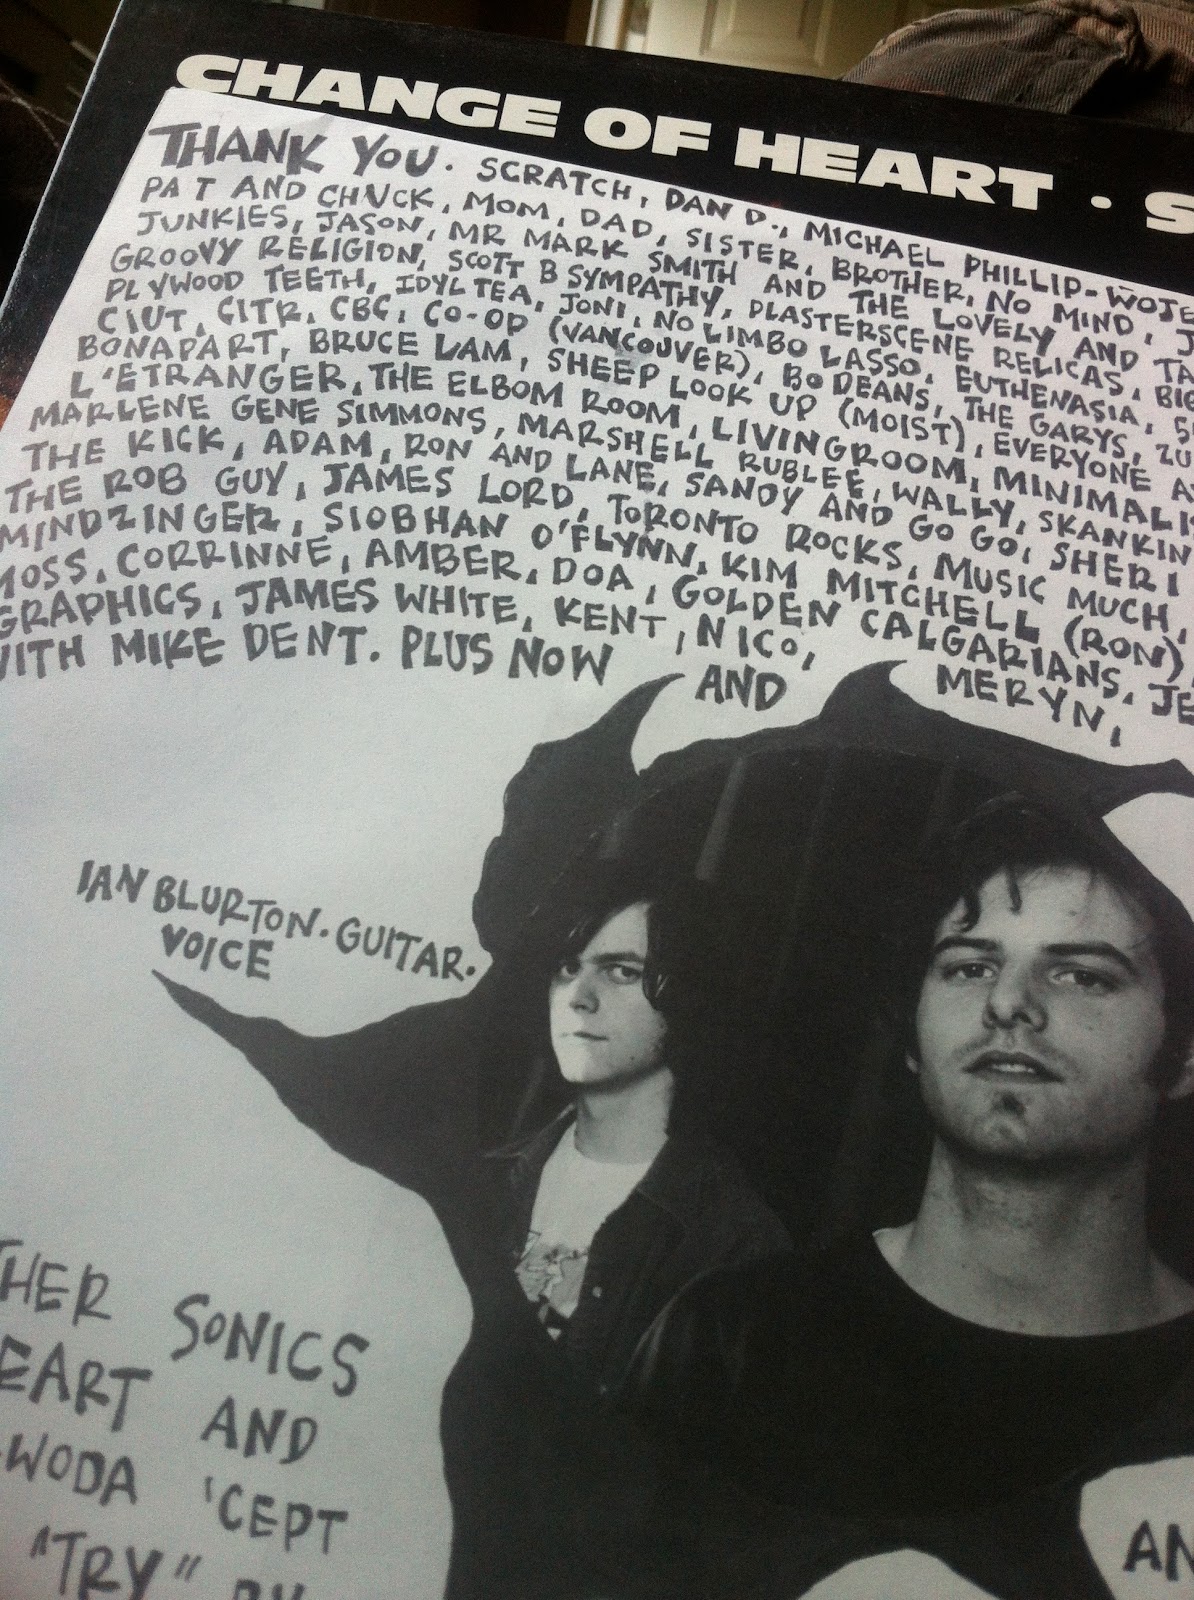 CHANGE OF HEART · S
THANK YOU. SCRATCH, DAN D., MICHAEL PHILLIP-WOJE
PAT AND CHUCK, MOM, DAD, SISTER, BROTHER, NO MIND, J
JUNKIES, JASON, MR MARK SMITH AND THE LOVELY AND TA
GROOVY RELIGION, SCOTT B SYMPATHY, PLASTERSCENE RELICAS, BIG
PLYWOOD TEETH, IDYL TEA, JONI, NO LIMBO LASSO, EUTHENASIA, S
CIUT, CITR, CBC, CO-OP (VANCOUVER), BODEANS, THE GARYS, ZU
BONAPART, BRUCE LAM, SHEEP LOOK UP (MOIST), EVERYONE A
L'ETRANGER, THE ELBOM ROOM, LIVINGROOM, MINIMALI
MARLENE GENE SIMMONS, MARSHELL RUBLEE, WALLY, SKANKIN
THE KICK, ADAM, RON AND LANE, SANDY AND GO GO, SHERI
THE ROB GUY, JAMES LORD, TORONTO ROCKS, MUSIC MUCH,
MINDZINGER, SIOBHAN O'FLYNN, KIM MITCHELL (RON),
MOSS, CORRINNE, AMBER, DOA, GOLDEN CALGARIANS, JE
GRAPHICS, JAMES WHITE, KENT, NICO, MERYN,
WITH MIKE DENT. PLUS NOW AND
IAN BLURTON. GUITAR.
VOICE
THER SONICS
EART AND
WODA 'CEPT
"TRY" BY
AN